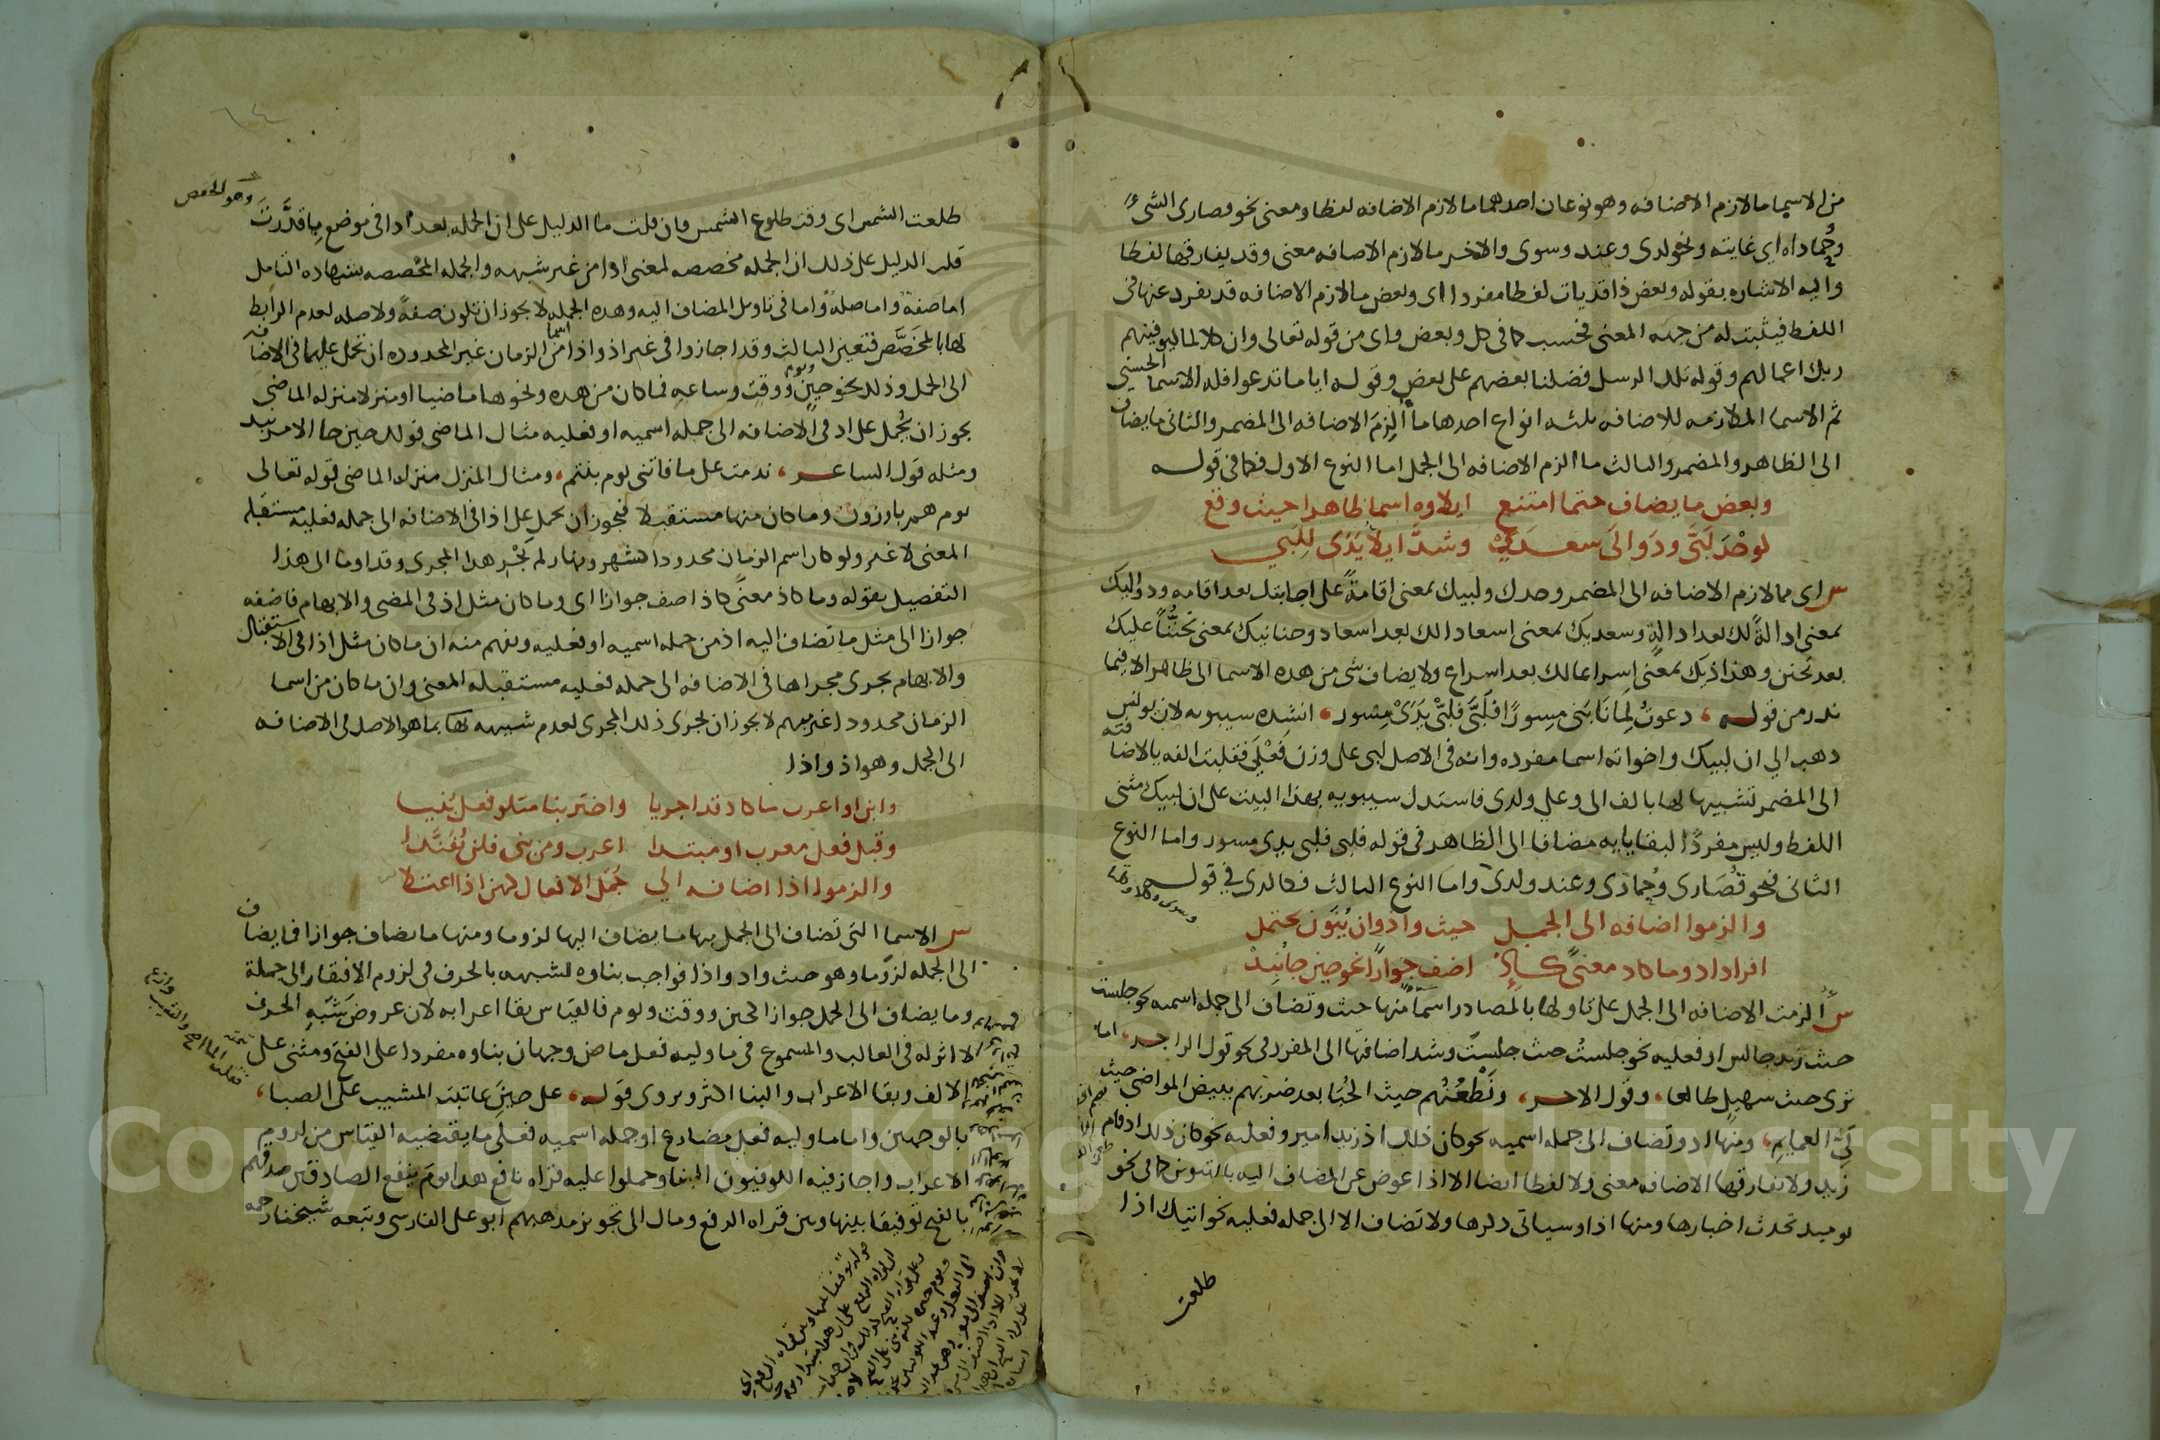 من الاسما ما لازم الاضافه وهو نوعان احدهما ما لازم الاضافه لفظا ومعنى نحو قصارى الشىء
وحُماداه اى غايته ونحو لدى وعند وسوى والاخر ما لازم الاضافه معنى وقد يفارقها لفظا
واليه الاشاره بقوله وبعض ذا قد يات لفظا مفردا اى وبعض ما لازم الاضافه قد يفرد عنها فى
اللفظ فيثبت له من جهه المعنى فحسب كما فى كل وبعض واى من قوله تعالى وان كلا لما ليوفينهم
ربك اعمالهم وقوله تلك الرسل فضلنا بعضهم على بعض وقوله ايا ما تدعوا فله الاسما الحسنى
ثم الاسما الملازمه للاضافه ثلثه انواع احدها ما الزم الاضافه الى المضمر والثانى ما يضاف
الى الظاهر والمضمر والثالث ما الزم الاضافه الى الجمل اما النوع الاول فكما فى قوله
وبعض ما يضاف حتما امتنع ايلاوه اسما ظاهرا حيث وقع
لوحْدَ لَبَّى ودَوالَى سعدَىْ وشذَّ ايلاُ يَدَى لِلَبَّي
س اى مما لازم الاضافه الى المضمر وحدك ولبيك بمعنى اقامةً على اجابتك بعد اقامه ودواليك
بمعنى ادالةً لك بعد ادالةٍ وسعديك بمعنى اسعادا لك بعد اسعاد وحنانيك بمعنى تحنُّناً عليك
بعد تحنن وهذاذيك بمعنى اسراعا لك بعد اسراع ولا يضاف شى من هذه الاسما الى ظاهر الا فيما
ندر من قوله دعوتُ لِمَا نَابَنى مِسورًا فَلَبَّى فلبَّىْ يَدَىْ مِسور انشده سيبويه لان يونس
ذهب الى ان لبيك واخواته اسما مفرده وانه فى الاصل لبى على وزن فَعْلَى فقلبت الفه يا لاضافته
الى المضمر تشبيها لها بالف الى وعلى ولدى فاستدل سيبويه بهذا البيت على ان لبيك مثنى
اللفظ وليس مفردًا لبقا يا به مضافا الى الظاهر فى قوله فلبى فلبى يدى مسور واما النوع
الثانى فنحو قُصَارى وحُمادَى وعند ولدى واما النوع الثالث فكالذى فى قوله
وسوى وكلا وكلتا
والزموا اضافه الى الجمل حيث واذ وان يُنَوَّن يحتمل
افراد اذ وما كاذ معنىً كاِذْ اضف جوازاً نحو حين جا نُبِذْ
س اُلزمت الاضافه الى الجمل على تاولها بالمصادر اسمآ منها حيث وتضاف الى جمله اسميه نحو جلست
حيث زيد جالس او فعليه نحو جلستُ حيث جلستَ وشذ اضافتها الى المفرد فى نحو قول الراجز اما
ترى حيث سهيلٍ طالعا وقول الاخر ونَطْعُنُهُم حيث الحُبَا بعد ضربهم ببيض المواضى حيث
لَىِّ العمايم ومنها اذ وتضاف الى جمله اسميه نحو كان ذلك اذ زيد امير وفعليه نحو كان ذلك اذ قام
زيد ولا تفارقها الاضافه معنى ولا لفظا ايضا الا اذا عوض عن المضاف اليه بالتنوين كما فى نحو
يوميذ تحدث اخبارها ومنها اذا وسياتى ذكرها ولا تضاف الا الى جمله فعليه نحو اتيتك اذا
طلعت
طلعت الشمس اى وقت طلوع الشمس فان قلت ما الدليل على ان الجمله بعد اذا فى موضع ما قدَّرتَ
وهو الخفض
قلت الدليل على ذلك ان الجمله مخصصه لمعنى اذا من غير شبهه والجمله المخصصه بشهاده التامل
اما صفه واما صله واما فى تاويل المضاف اليه وهذه الجمله لا يجوز ان تكون صفهً ولا صله لعدم الرابط
لها بالمخصَّص فتعين الثالث وقد اجازوا فى غير اذ واذا من اسما الزمان غير المحدوده ان تحمل عليهما فى الاضافه
الى الجمل وذلك نحو حينٍ ويوم ووقت وساعه فما كان من هذه ونحوها ماضيا او منزلا منزله الماضى
يجوز ان يُحمل على اذ فى الاضافه الى جمله اسميه او فعليه مثال الماضى قولك حين جا الامير نبذ
ومثله قول الشاعر ندمت على ما فاتنى يوم بنتم ومثال المنزل منزله الماضى قوله تعالى
يوم هم بارزون وما كان منها مستقبلا فيجوز ان يحمل على اذا فى الاضافه الى جمله فعليه مستقبله
المعنى لا غير ولو كان اسم الزمان محدودا كشهر ونهار لم يَجْرِ هذا المجرى وقد اوما الى هذا
التفصيل بقوله وما كاذ معنىً كاذ اضف جوازا اى وما كان مثل اذ فى المضى والابهام فاضفه
جوازا الى مثل ما تضاف اليه اذ من جمله اسميه او فعليه ويفهم منه ان ما كان مثل اذا فى الاستقبال
والابهام يجرى مجراها فى الاضافه الى جمله فعليه مستقبله المعنى وان ما كان من اسما
الزمان محدودا غير مبهم لا يجوز ان يجرى ذلك المجرى لعدم شبهه بما هو الاصل فى الاضافه
الى الجمل وهو اذ واذا
وابن او اعرب ما كاذ قد اجريا واختر بنا متلو فعل بُنيا
وقبل فعل معرب او مبتدا اعرب ومن بنى فلن يُفنَّدا
والزموا اذا اضافه الى جُمَل الافعال كهن اذا اعتلا
س الاسما التى تضاف الى الجمل منها ما يضاف اليها لزوما ومنها ما يضاف جوازا فما يضاف
الى الجمله لزومًا وهو حيث واذ واذا فواجب بناوه لشبهه بالحرف فى لزوم الافتقار الى جمله
وما يضاف الى الجمل جوازا كحين ووقت ويوم فالقياس بقا اعرابه لان عروض شَبَهِ الحرف
لا اثر له فى الغالب والمسموع فى ما وليه فعل ماض وجهان بناوه مفردا على الفتح ومثنى على
الالف وبقا الاعراب والبنا اكثر ويروى قوله على حينَِ عاتبت المشيب على الصبا
بالوجهين واما ما وليه فعل مضارع او جمله اسميه فعلى ما يقتضيه القياس من لزوم
الاعراب واجاز فيه الكوفيون البنا وحملوا عليه قراه نافع هذا يومَ ينفع الصادقين صدقهم
بالفتح توفيقا بينها وبين قراه الرفع ومال الى تجويز مذهبهم ابو على الفارسى وتبعه شيخنا رحمه